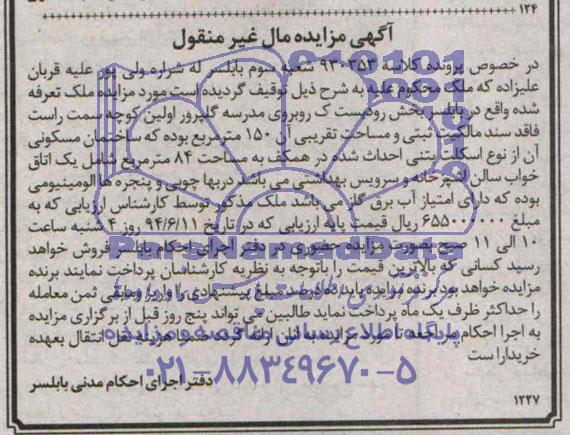 ۱۲۴
آگهی مزایده مال غیر منقول
در خصوص پرونده کلاسه ۹۳۰۳۵۳ شعبه سوم بابلسر له شراره ولی پور علیه قربان
علیزاده که ملک محکوم علیه به شرح ذیل توقیف گردیده است مورد مزایده ملک تعرفه
شده واقع در بابلسر بخش رودبست ک روبروی مدرسه گلپرور اولین کوچه سمت راست
فاقد سند مالکیت ثبتی و مساحت تقریبی آن ۱۵۰ مترمربع بوده که ساختمان مسکونی
آن از نوع اسکلت بتنی احداث شده در همکف به مساحت ۸۴ مترمربع شامل یک اتاق
خواب سالن آشپزخانه و سرویس بهداشتی می باشد دربها چوبی و پنجره ها آلومینیومی
بوده که دارای امتیاز آب برق گاز می باشد ملک مذکور توسط کارشناس ارزیابی که به
مبلغ ۶۵۵۰۰۰۰۰۰ ریال قیمت پایه ارزیابی که در تاریخ ۹۴/۶/۱۱ روز ۴ شنبه ساعت
۱۰ الی ۱۱ صبح بصورت مزایده حضوری در دفتر اجرای احکام بابلسر فروش خواهد
رسید کسانی که بالاترین قیمت را باتوجه به نظریه کارشناسان پرداخت نمایند برنده
مزایده خواهد بود برنده مزایده باید ده درصد مبلغ پیشنهادی را واریز و مابقی ثمن معامله
را حداکثر ظرف یک ماه پرداخت نماید طالبین می تواند پنج روز قبل از برگزاری مزایده
به اجرا احکام مراجعه تا مورد مزایده به آنان ارائه گردد ضمنا هزینه نقل انتقال بعهده
خریدار است
دفتر اجرای احکام مدنی بابلسر
۱۲۲۷
ParsNamadData
پایگاه اطلاع رسانی مناقصه و مزایده
۰۲۱-۸۸۳۴۹۶۷۰-۵